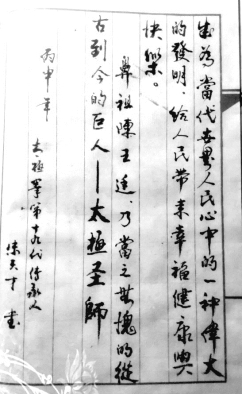 成為當代世界人民心中的一种偉大
的發明，给人民带来幸福健康與
快樂。
鼻祖陳王廷，乃當之無愧的從
古到今的巨人—太極圣師
丙申年
太極拳第十九代传承人